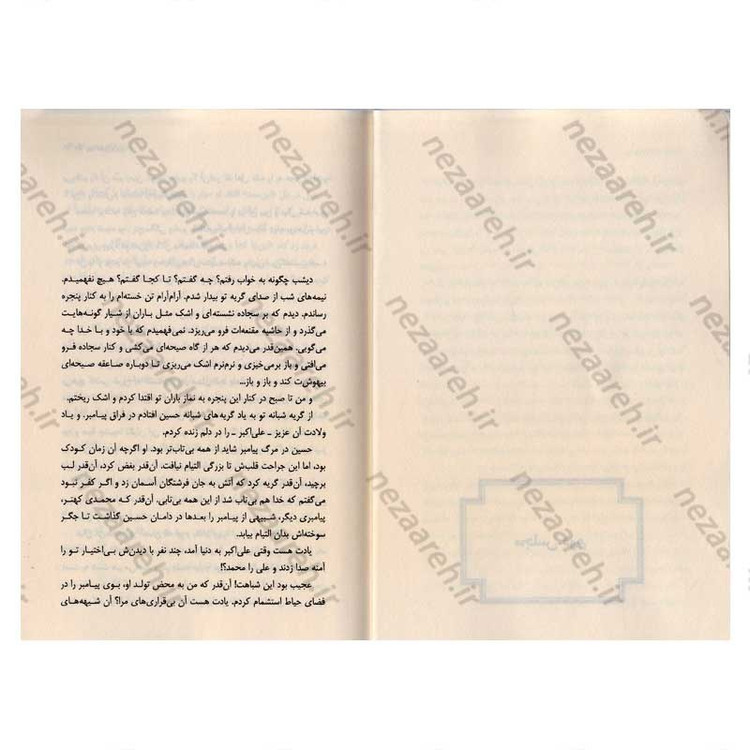 دیشب چگونه به خواب رفتم؟ چه گفتم؟ تا کجا گفتم؟ هیچ نفهمیدم.
نیمه‌های شب از صدای گریه تو بیدار شدم. آرام‌آرام تن خسته‌ام را به کنار پنجره
رساندم. دیدم که بر سجاده نشسته‌ای و اشک مثل باران از شیار گونه‌هایت
می‌گذرد و از حاشیه مقنعه‌ات فرو می‌ریزد. نمی‌فهمیدم که با خود و با خدا چه
می‌گویی. همین‌قدر می‌دیدم که هر از گاه صیحه‌ای می‌کشی و کنار سجاده فرو
می‌افتی و باز برمی‌خیزی و نرم‌نرم اشک می‌ریزی تا دوباره صاعقه صیحه‌ای
بیهوش‌ت کند و باز و باز...
و من تا صبح در کنار این پنجره به نماز باران تو اقتدا کردم و اشک ریختم.
از گریه شبانه تو به یاد گریه‌های شبانه حسین افتادم در فراق پیامبر. و یاد
ولادت آن عزیز ـ علی‌اکبر ـ را در دلم زنده کردم.
حسین در مرگ پیامبر شاید از همه بی‌تاب‌تر بود. او اگرچه آن زمان کودک
بود، اما این جراحت قلبش تا بزرگی التیام نیافت. آن‌قدر بغض کرد، آن‌قدر لب
برچید، آن‌قدر گریه کرد که آتش به جان فرشتگان آسمان زد و اگر کفر نبود
می‌گفتم که خدا هم بی‌تاب شد از این همه بی‌تابی. آن‌قدر که محمدی کهتر،
پیامبری دیگر، شبیهی از پیامبر را بعدها در دامان حسین گذاشت تا جگر
سوخته‌اش بدان التیام بیابد.
یادت هست وقتی علی‌اکبر به دنیا آمد، چند نفر با دیدنش بی‌اختیار تو را
آمنه صدا زدند و علی را محمد؟!
عجیب بود این شباهت! آن‌قدر که من به محض تولد او، بوی پیامبر را در
فضای حیاط استشمام کردم. یادت هست آن بی‌قراری‌های مرا؟ آن شیهه‌های
nezaareh.ir
nezaareh.ir
nezaareh.ir
nezaareh.ir
nezaareh.ir
nezaareh.ir
nezaareh.ir
nezaareh.ir
nezaareh.ir
nezaareh.ir
nezaareh.ir